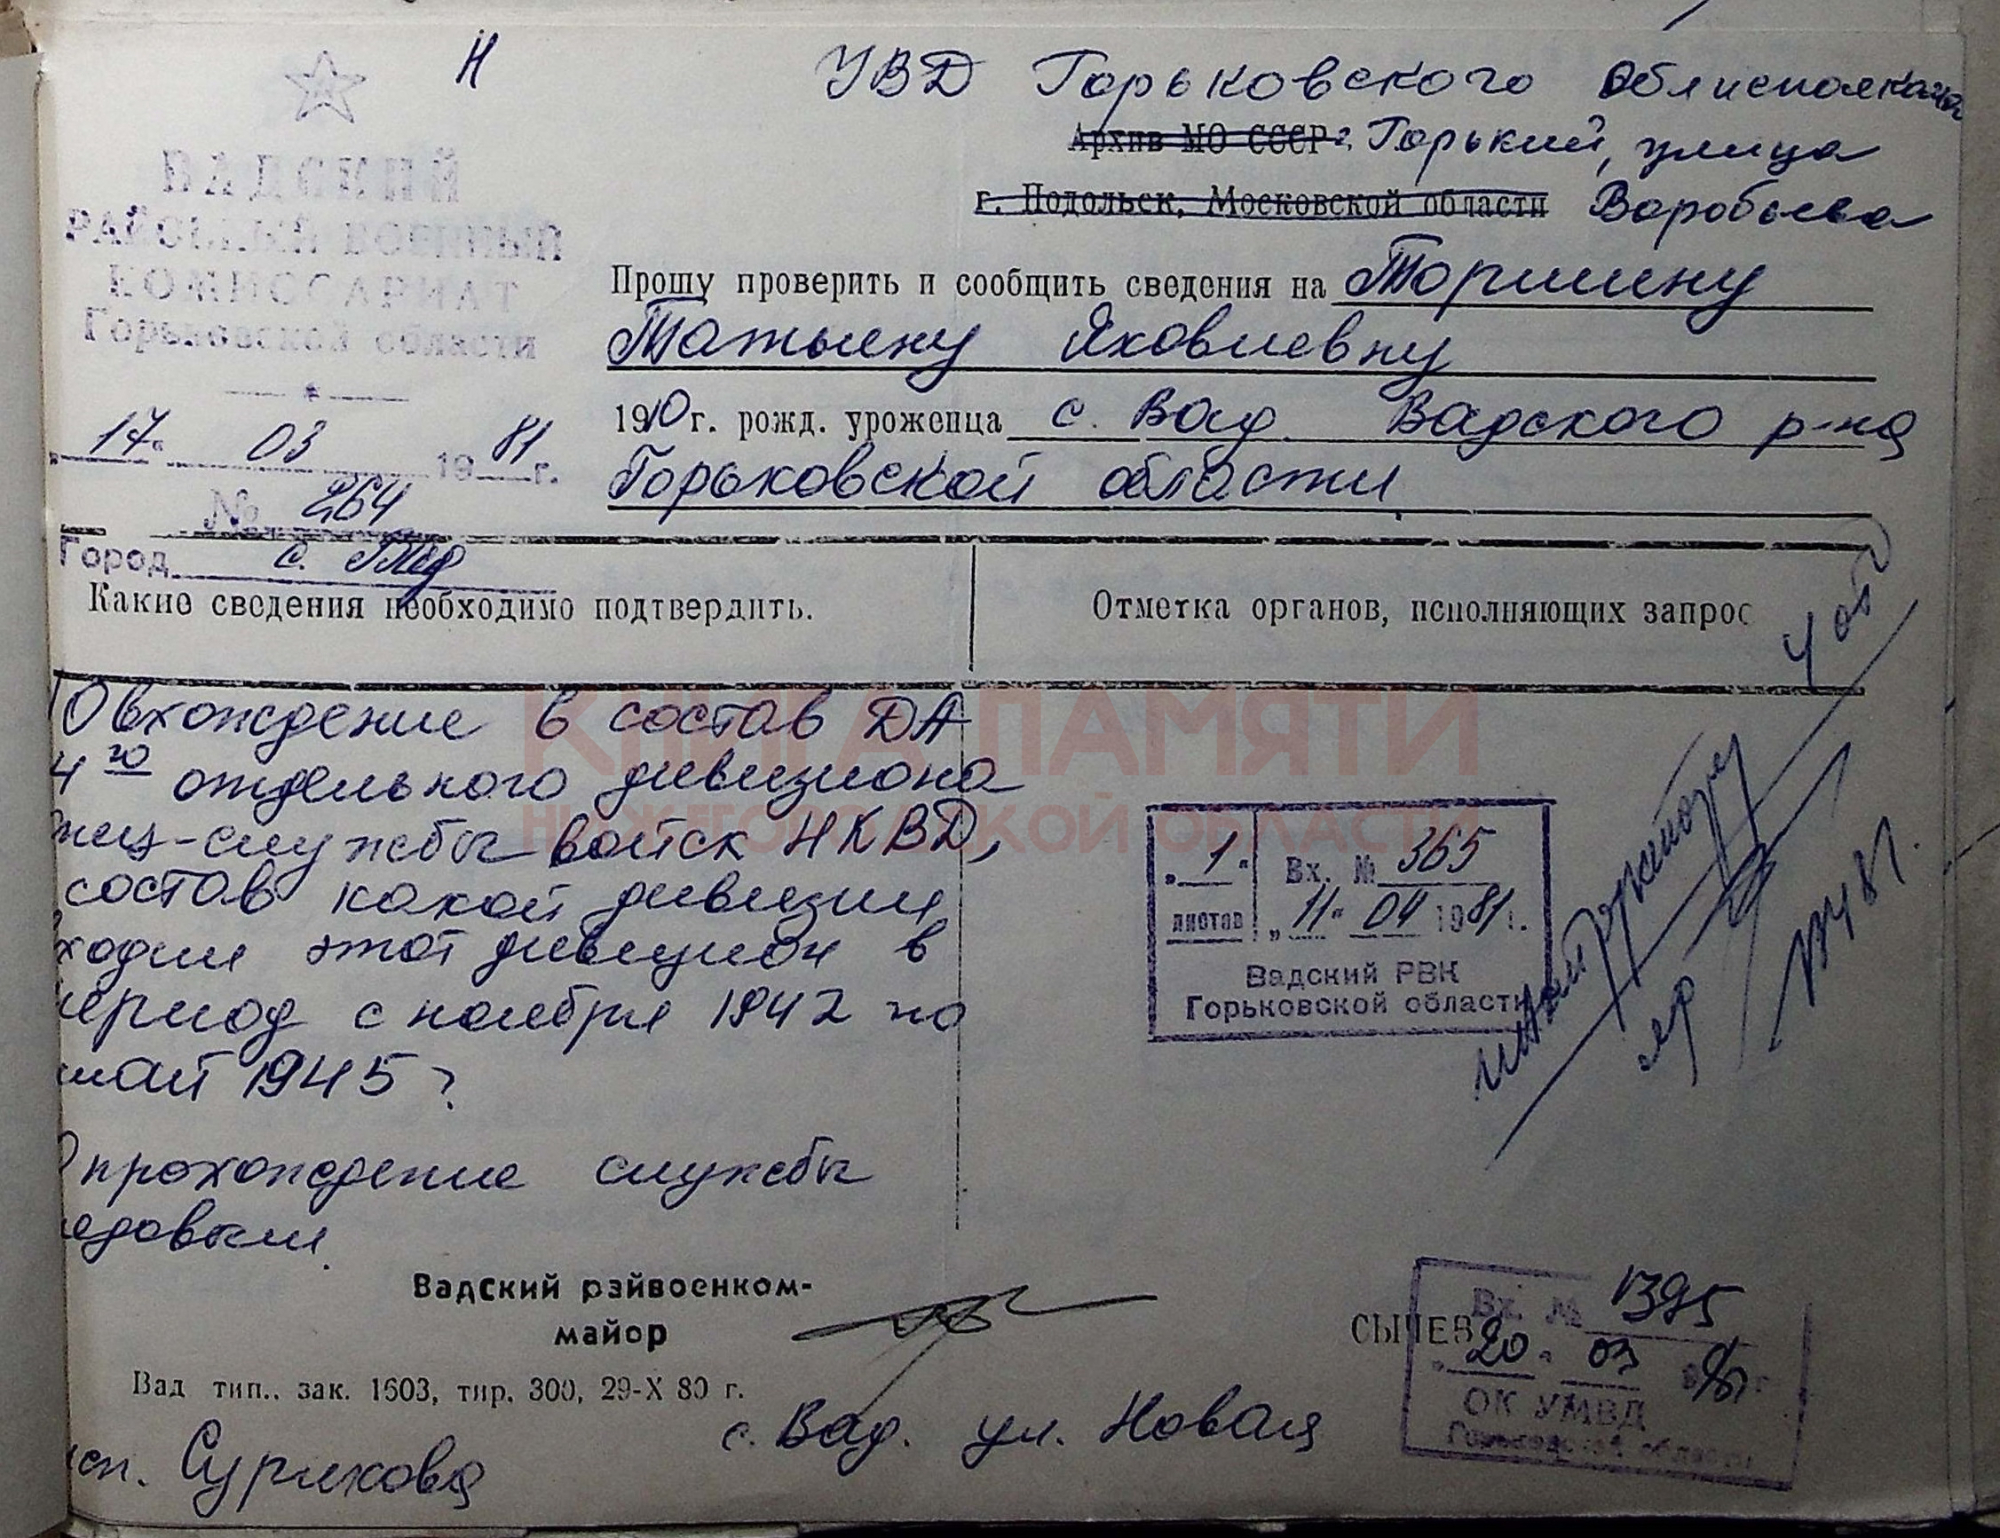 Н
УВД Горьковского Облисполкома
Архив МО СССР г. Горький, улица
г. Подольск, Московской области Воробьева
ВАДСКИЙ
РАЙОННЫЙ ВОЕННЫЙ
КОМИССАРИАТ
Горьковской области
„17“ 03 1981 г.
№ 264
Город с. Вад
Прошу проверить и сообщить сведения на Торшину
Татьяну Яковлевну
1910 г. рожд. уроженца с. Вад. Вадского р-на
Горьковской области
Какие сведения необходимо подтвердить.
Отметка органов, исполняющих запрос
О вхождение в состав ДА
4го отдельного дивизиона
спец-службы войск НКВД,
состав какой дивизии
входил этот дивизион в
период с ноября 1942 по
май 1945 г
О прохождение службы
рядовым
КНИГА ПАМЯТИ
НИЖЕГОРОДСКОЙ ОБЛАСТИ
„1“ листов
Вх. № 365
„11“ 04 1981 г.
Вадский РВК
Горьковской области
Вадский райвоенком-
майор
СЫЧЕВ
Вх. № 1395
„20“ 03 81 г
ОК УМВД
Горьковской области
Вад тип., зак. 1603, тир. 300, 29-X 80 г.
с. Вад. ул. Новая
исп. Сурикова